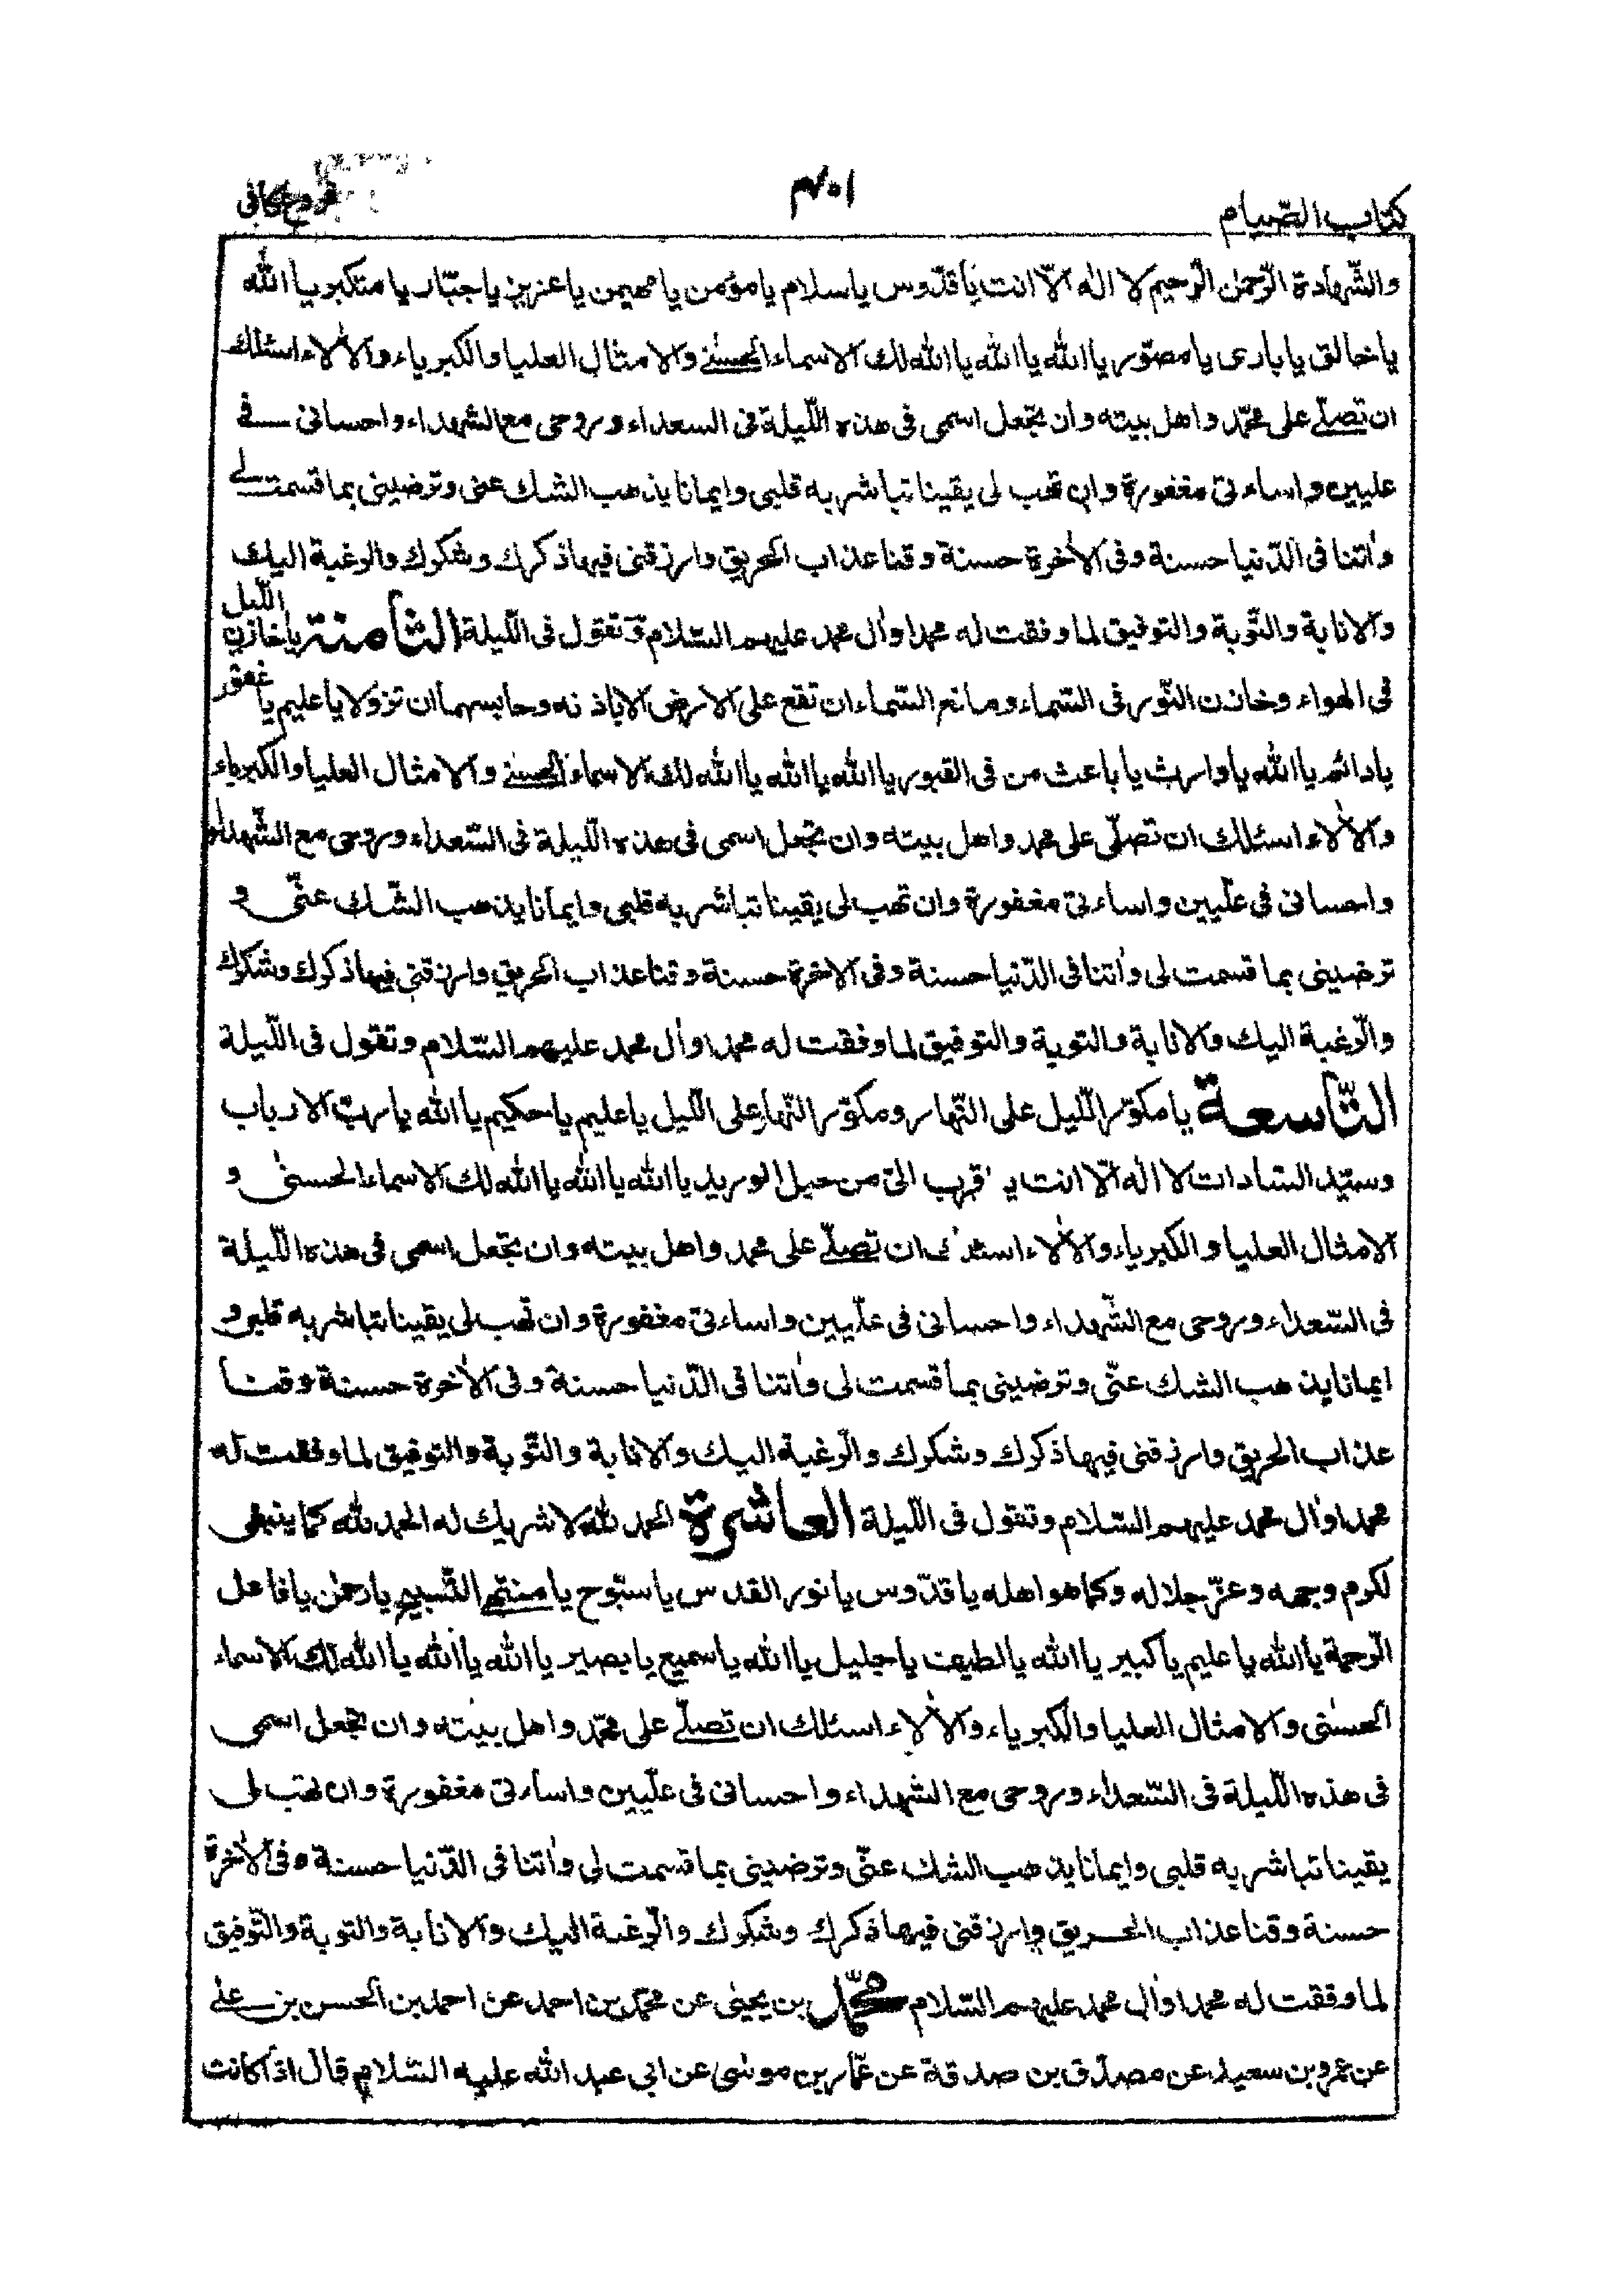 كتاب الصّيام
فروع كافى
والشّهادة الرّحمٰن الرّحيم لا اله الّا انت يا قدّوس يا سلام يا مؤمن يا مهيمن يا عزيز يا جبّار يا متكبر يا الله
يا خالق يا بارى يا مصوّر يا الله يا الله يا الله لك الاسماء الحسنے والامثال العليا والكبرياء والآلاء اسئلك
ان تصلّے على محمّد واهل بيته وان تجعل اسمى فى هذه اللّيلة فى السعداء وروحى مع الشهداء واحسانى فے
عليين واساءتى مغفورة وان تهب لى يقينا تباشر به قلبى وايمانا يذهب الشك عنى وترضينى بما قسمت لے
واٰتنا فى الدّنيا حسنة وفى الاٰخرة حسنة وقنا عذاب الحريق وارزقنى فيها ذكرك وشكرك والرغبة اليك
والانابة والتّوبة والتوفيق لما وفقت له محمدا واٰل محمد عليهم السّلام وتقول فى اللّيلة الثامنة يا خازن اللّيل
فى الهواء وخازن النّور فى السّماء ومانع السّماء ان تقع على الارض الا باذنه وحابسهما ان تزولا يا عليم يا غفور
يا دائم يا الله يا وارث يا باعث من فى القبور يا الله يا الله يا الله لك الاسماء الحسنے والامثال العليا والكبرياء
والآلاء اسئلك ان تصلّى على محمد واهل بيته وان تجعل اسمى فى هذه اللّيلة فى السّعداء وروحى مع الشّهداء
واحسانى فى علّيين واساءتى مغفورة وان تهب لى يقينا تباشر به قلبى وايمانا يذهب الشّك عنّى و
ترضينى بما قسمت لى واٰتنا فى الدّنيا حسنة وفى الاخرة حسنة وقنا عذاب الحريق وارزقنى فيها ذكرك وشكرك
والرّغبة اليك والانابة والتوبة والتوفيق لما وفقت له محمدا واٰل محمد عليهم السّلام وتقول فى اللّيلة
التّاسعة يا مكوّر اللّيل على النّهار ومكوّر النّهار على اللّيل يا عليم يا حكيم يا الله يا ربّ الارباب
وسيّد السّادات لا اله الّا انت يا اقرب الىّ من حبل الوريد يا الله يا الله يا الله لك الاسماء الحسنى و
الامثال العليا والكبرياء والآلاء اسئلك ان تصلّے على محمد واهل بيته وان تجعل اسمى فى هذه اللّيلة
فى السّعداء وروحى مع الشّهداء واحسانى فى علّيين واساءتى مغفورة وان تهب لى يقينا تباشر به قلبى و
ايمانا يذهب الشك عنّى وترضينى بما قسمت لى واٰتنا فى الدّنيا حسنة وفى الاٰخرة حسنة وقنا
عذاب الحريق وارزقنى فيها ذكرك وشكرك والرّغبة اليك والانابة والتّوبة والتوفيق لما وفقت له
محمدا واٰل محمد عليهم السّلام وتقول فى اللّيلة العاشرة الحمد لله لا شريك له الحمد لله كما ينبغى
لكرم وجهه وعزّ جلاله وكما هو اهله يا قدّوس يا نور القدس يا سبّوح يا منتهے التّسبيح يا رحمٰن يا فاعل
الرّحمة يا الله يا عليم يا كبير يا الله يا لطيف يا جليل يا الله يا سميع يا بصير يا الله يا الله يا الله لك الاسماء
الحسنى والامثال العليا والكبرياء والآلاء اسئلك ان تصلّے على محمّد واهل بيته وان تجعل اسمى
فى هذه اللّيلة فى السّعداء وروحى مع الشهداء واحسانى فى علّيين واساءتى مغفورة وان تهب لى
يقينا تباشر به قلبى وايمانا يذهب الشك عنّى وترضينى بما قسمت لى واٰتنا فى الدّنيا حسنة وفى الاٰخرة
حسنة وقنا عذاب الحريق وارزقنى فيها ذكرك وشكرك والرّغبة اليك والانابة والتوبة والتّوفيق
لما وفقت له محمدا واٰل محمد عليهم السّلام محمّد بن يحيٰى عن محمّد بن احمد عن احمد بن الحسن بن علے
عن عمرو بن سعيد عن مصدّق بن صدقة عن عمّار بن موسٰى عن ابى عبد الله عليه السّلام قال اذا كانت